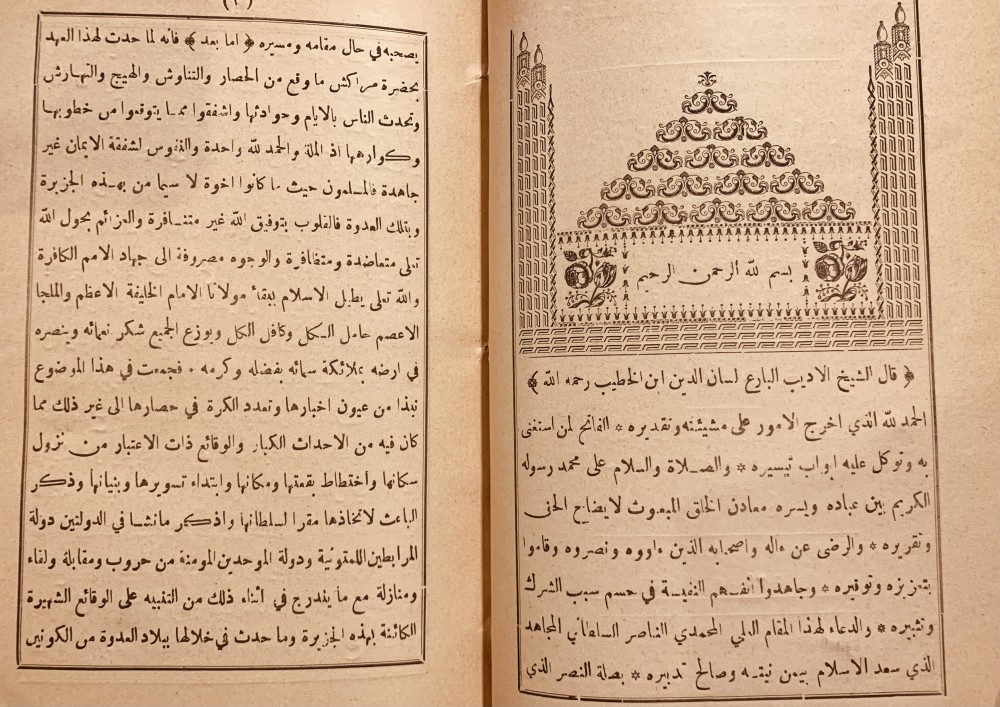 بسم لله الرحمن الرحيم
﴿ قال الشيخ الاديب البارع لسان الدين ابن الخطيب رحمه الله ﴾
الحمد لله الذي اخرج الامور على مشيئته وتقديره * الفاتح لمن استغنى
به وتوكل عليه ابواب تيسيره * والصلاة والسلام على محمد رسوله
الكريم بين عباده ويسره معادن الخلق المبعوث لايضاح الحق
وتقريره * والرضى عن ءاله واصحابه الذين ءاووه ونصروه وقاموا
بتعزيزه وتوقيره * وجاهدوا انفسهم النفيسة في حسم سبب الشرك
وتثبيره * والدعاء لهذا المقام العلي المحمدي الناصر السلطاني المجاهد
الذي سعد الاسلام بيمن نيته وصالح تدبيره * بصلة النصر الذي
(٣)
يصحبه في حال مقامه ومسيره ﴿ اما بعد ﴾ فانه لما حدث لهذا العهد
بحضرة مراكش ما وقع من الحصار والتناوش والهيج والتهارش
وتحدث الناس بالايام وحوادثها واشفقوا مما يتوقعوا من خطوبها
وكوارهها اذ الملة والحمد لله واحدة والنفوس لشفقة الايمان غير
جاهدة فالمسلمون حيث ما كانوا اخوة لا سيما من بهذه الجزيرة
وبتلك العدوة فالقلوب بتوفيق الله غير متنافرة والعزائم بحول الله
تعلى متعاضدة ومتضافرة والوجوه مصروفة الى جهاد الامم الكافرة
والله تعلى يطيل الاسلام ببقاء مولانا الامام الخليفة الاعظم والملجا
الاعصم حامل الكل وكافل الكل ويوزع الجميع شكر نعمائه وينصره
في ارضه بملائكة سمائه بفضله وكرمه ٠ فجمعت في هذا الموضوع
نبذا من عيون اخبارها وتعدد الكرة في حصارها الى غير ذلك مما
كان فيه من الاحداث الكبار والوقائع ذات الاعتبار من نزول
سكانها واختطاط بقعتها ومكانها وابتداء تسويرها وبنيانها وذكر
الباعث لاتخاذها مقرا لسلطانها واذكر ما نشا في الدولتين دولة
المرابطين اللمتونية ودولة الموحدين المومنة من حروب ومقابلة ولقاء
ومنازلة مع ما يندرج في اثناء ذلك من التنبيه على الوقائع الشهيرة
الكائنة بهذه الجزيرة وما حدث في خلالها ببلاد العدوة من الكوائن